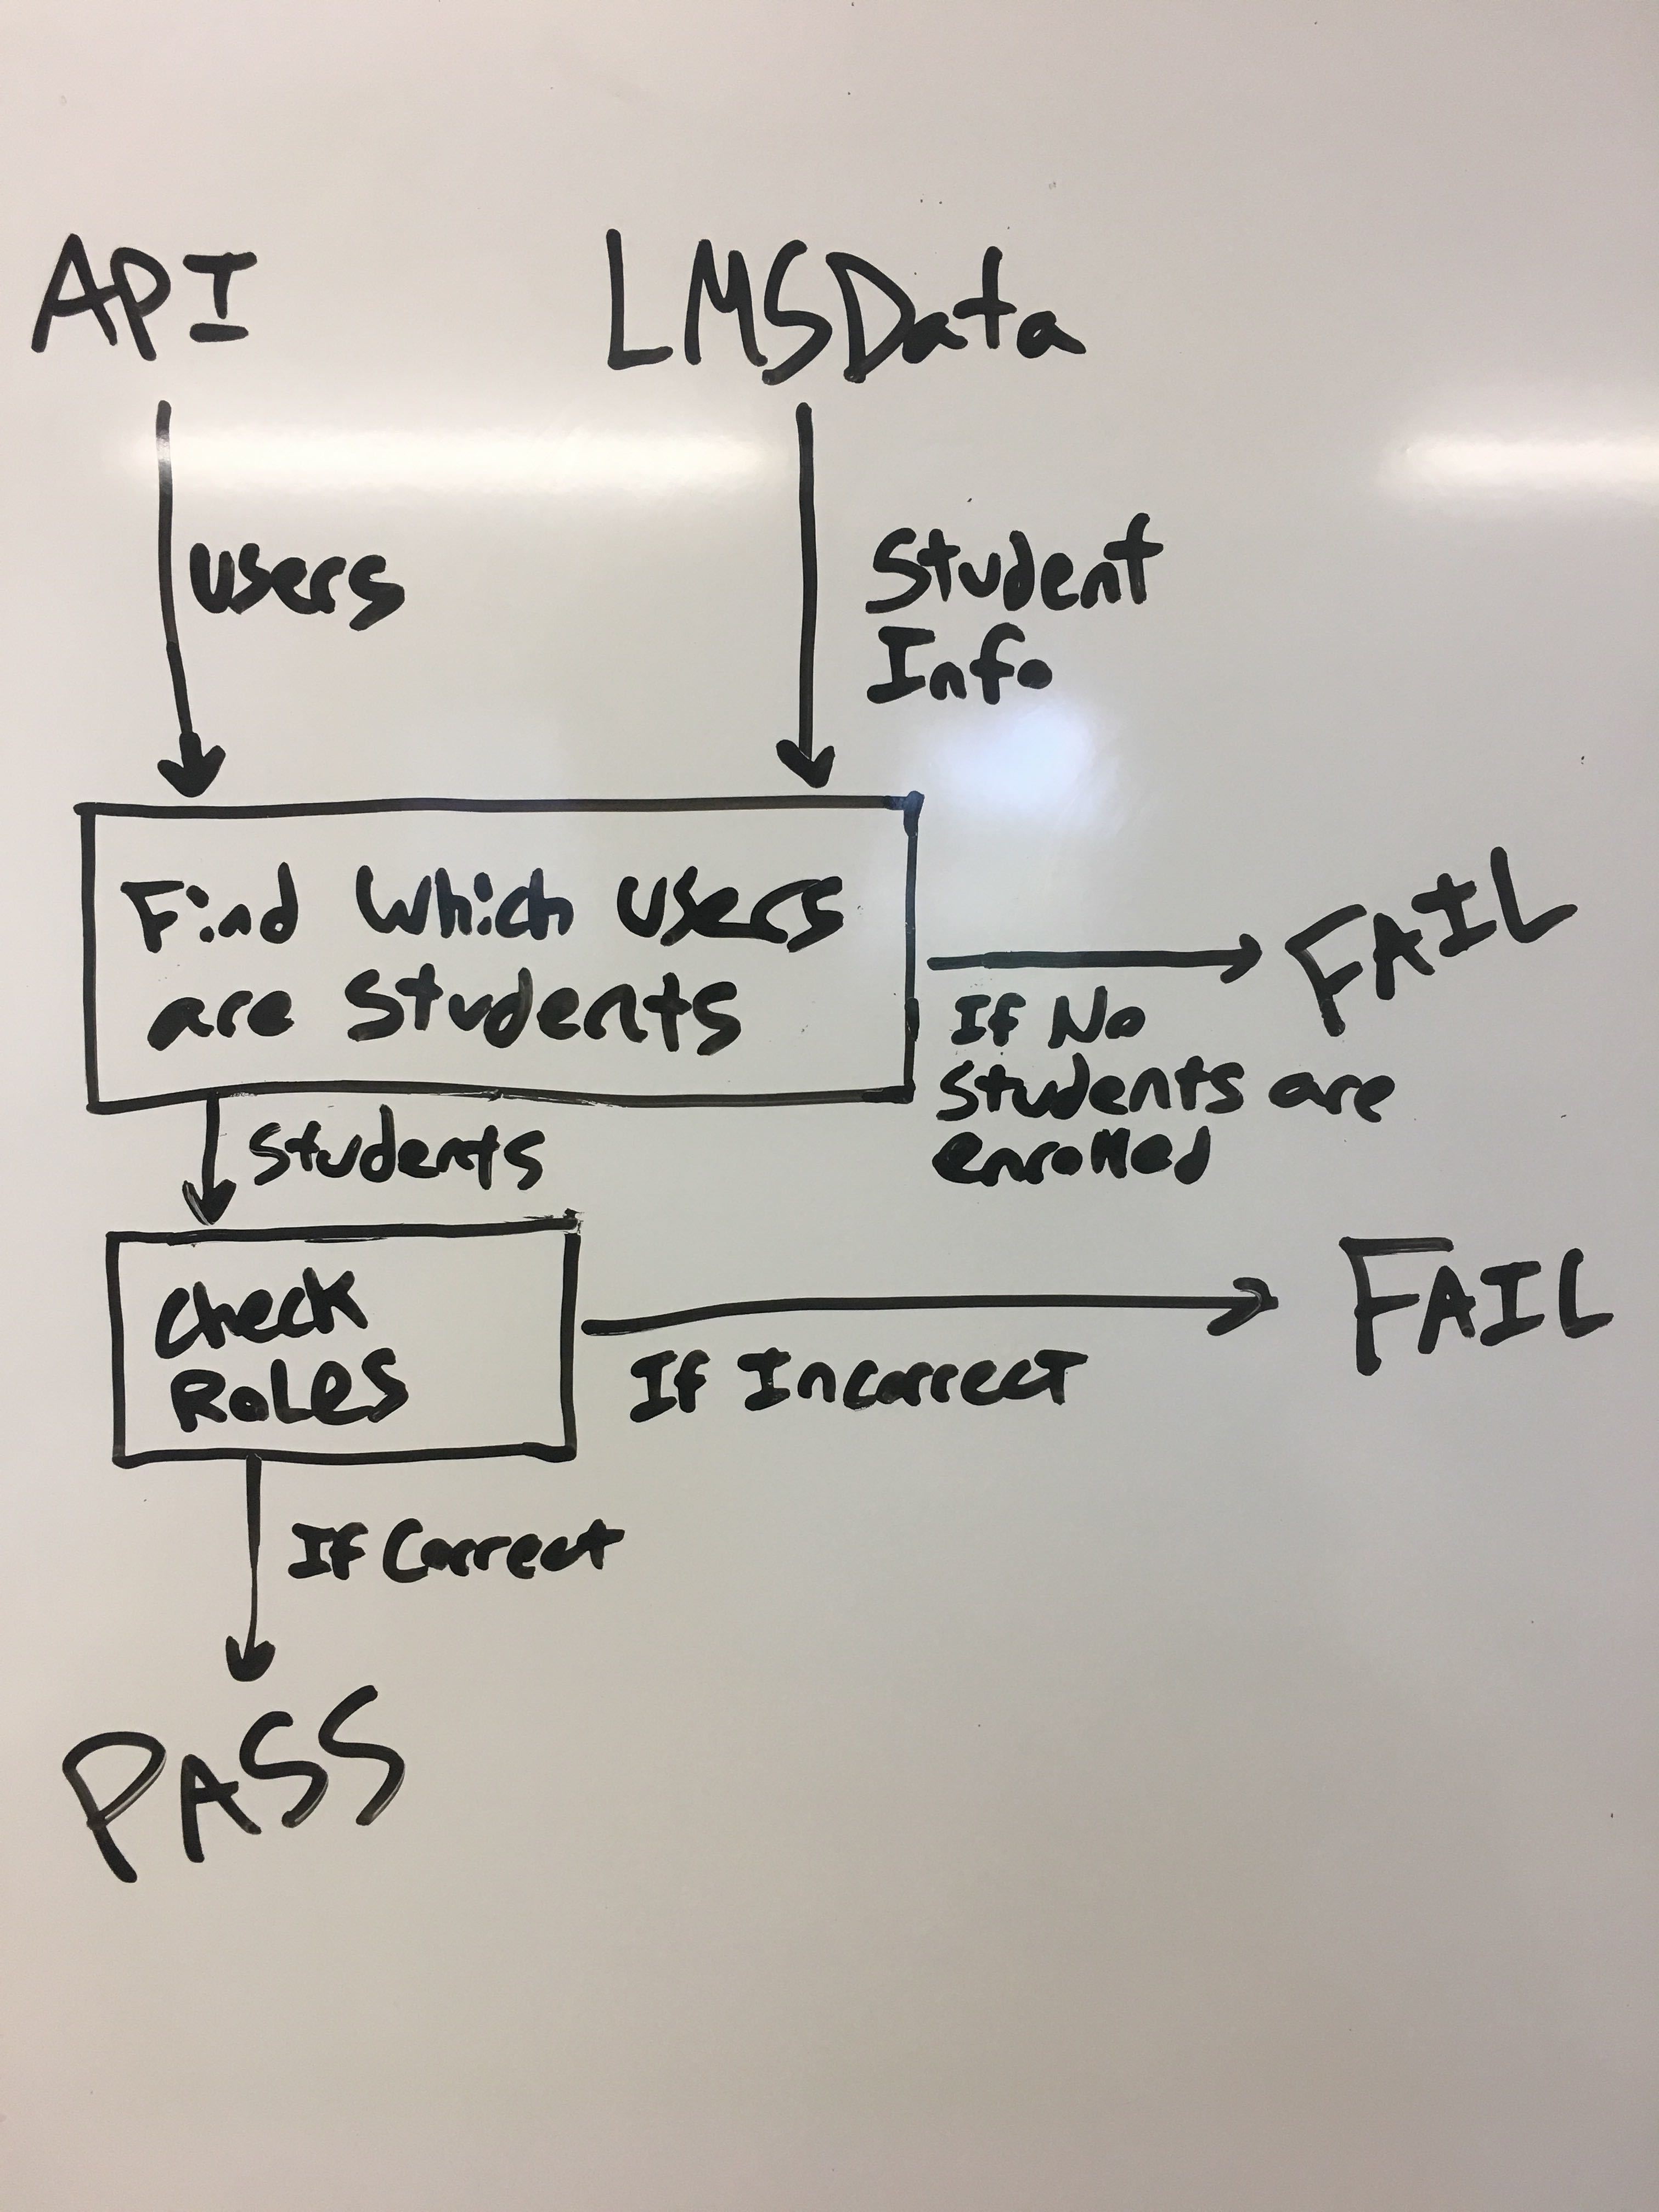 API
LMSData
users
Student
Info
Find Which users
are Students
FAIL
If No
Students are
enrolled
Students
Check
Roles
FAIL
If Incorrect
If Correct
PASS